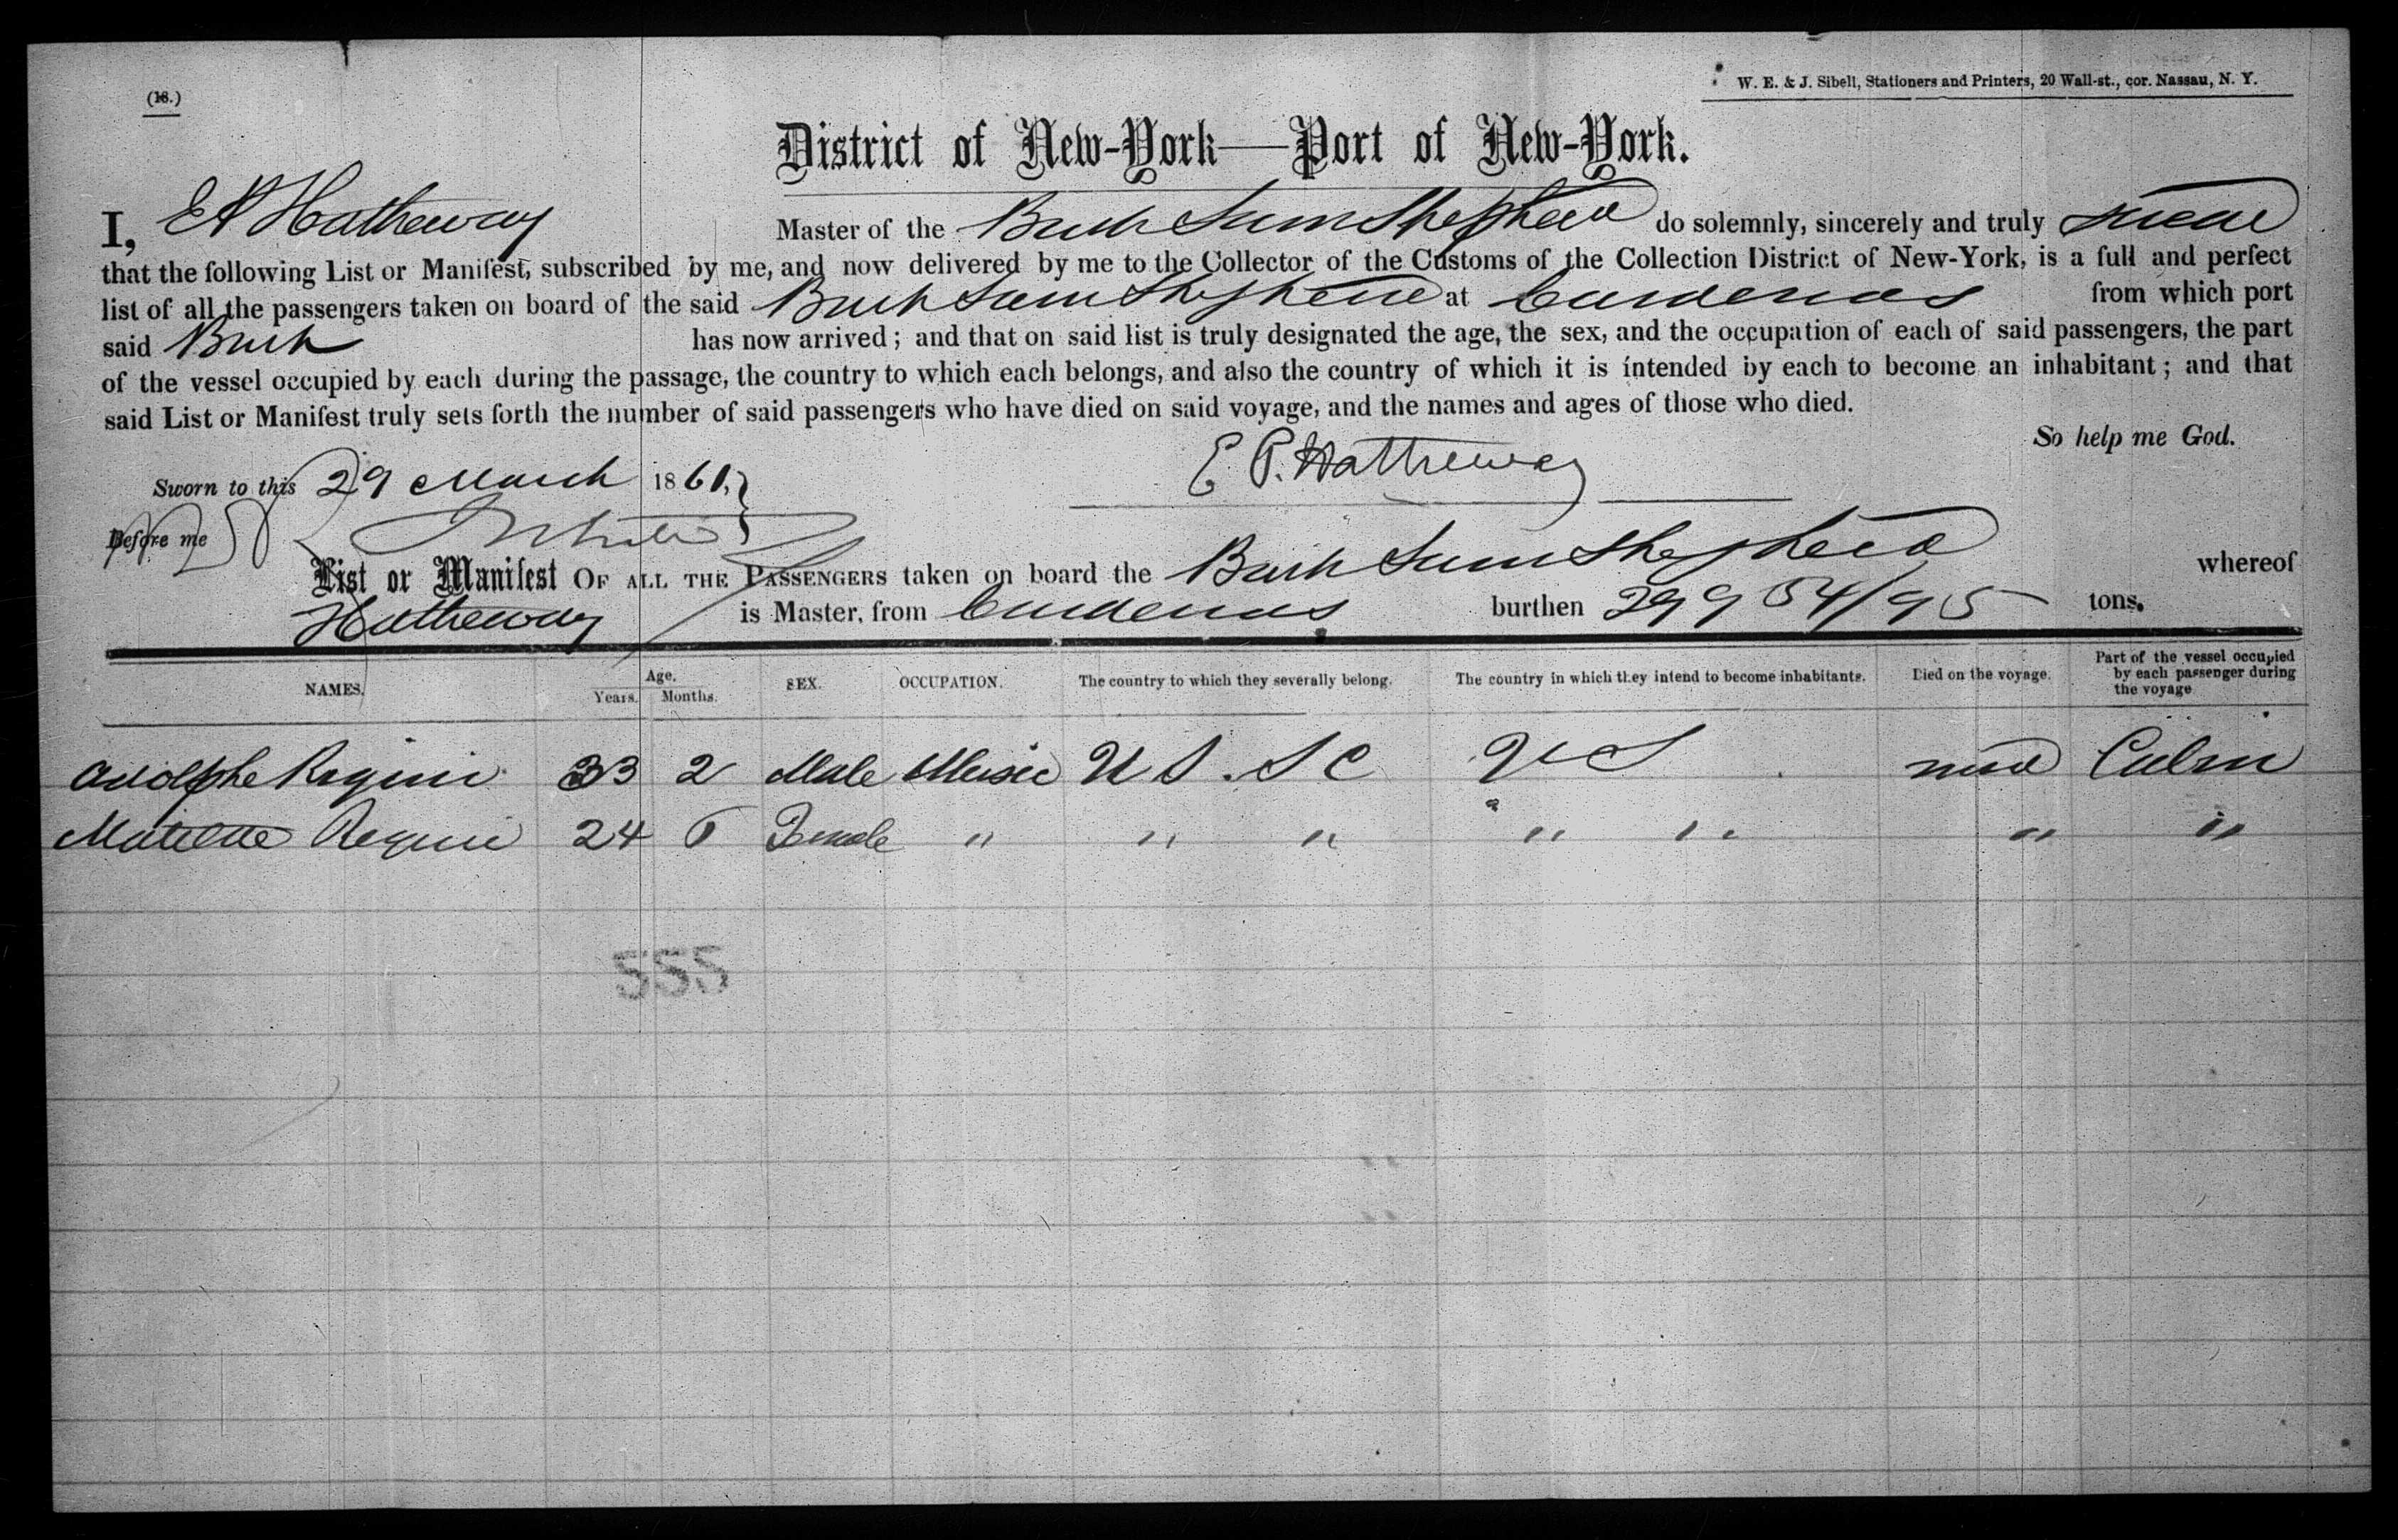 (18.)
W. E. & J. Sibell, Stationers and Printers, 20 Wall-st., cor. Nassau, N. Y.
District of New-York—Port of New-York.
I, E P Hatheway Master of the Brig Sam Shepherd do solemnly, sincerely and truly swear
that the following List or Manifest, subscribed by me, and now delivered by me to the Collector of the Customs of the Collection District of New-York, is a full and perfect
list of all the passengers taken on board of the said Sam Shepherd at Cardenas from which port
said has now arrived; and that on said list is truly designated the age, the sex, and the occupation of each of said passengers, the part
of the vessel occupied by each during the passage, the country to which each belongs, and also the country of which it is intended by each to become an inhabitant; and that
said List or Manifest truly sets forth the number of said passengers who have died on said voyage, and the names and ages of those who died.
So help me God.
Sworn to this 29 March 1861,
E. P. Hatheway
Before me
List or Manifest OF ALL THE PASSENGERS taken on board the Sam Shepherd whereof
Hatheway is Master, from Cardenas burthen 299 54/95 tons.
NAMES. Age. Years. Months. SEX. OCCUPATION. The country to which they severally belong. The country in which they intend to become inhabitants. Died on the voyage. Part of the vessel occupied by each passenger during the voyage
Adolphe 33 2 Male Music U S. S C U S Cabin
24 6 Female " " " " " " "
555